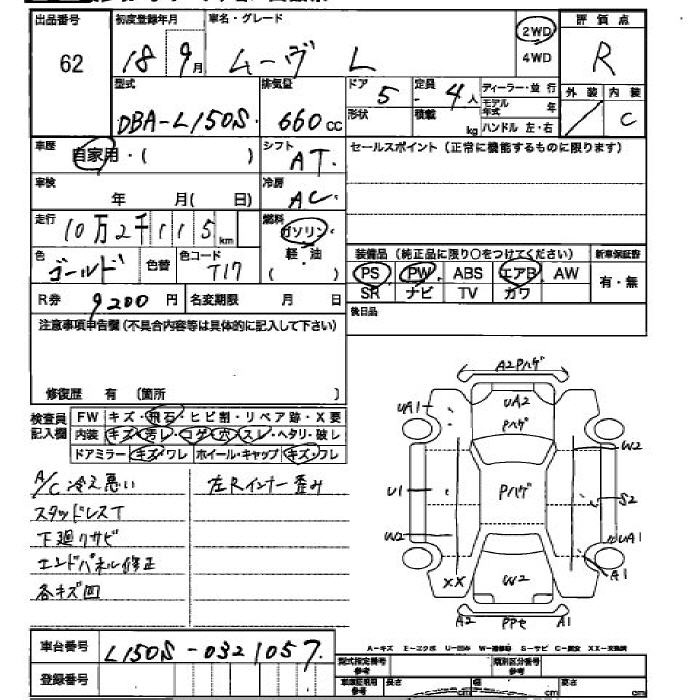 出品番号 初度登録年月 車名・グレード 2WD 評価点
62 18 9月 ムーヴ L 4WD R
型式 排気量 ドア 5 定員 4人 ディーラー・並行 外装 内装
DBA-L150S 660cc 形状 積載 kg モデル年式 年 C
ハンドル 左・右
車歴 自家用・( ) シフト AT セールスポイント (正常に機能するものに限ります)
車検 年 月( 日) 冷房 AC
走行 10万2千115km 燃料 ガソリン
軽・油
色 ゴールド 色替 色コード T17 ( )
装備品 (純正品に限り○をつけてください) 新車保証書
PS PW ABS エアB AW 有・無
SR ナビ TV カワ
R券 9200円 名変期限 月 日 後日品
注意事項申告欄 (不具合内容等は具体的に記入して下さい)
修復歴 有 〔箇所 〕
検査員記入欄 FW キズ・飛石・ヒビ割・リペア跡・X要
内装 キズ・汚レ・コゲ・穴・スレ・ヘタリ・破レ
ドアミラー キズ・ワレ ホイール・キャップ キズ・フレ
A/C 冷え悪い 左Rインナー歪み
スタッドレスT
下廻りサビ
エンドパネル修正
各キズ凹
A2Pハゲ
UA1 UA2
Pハゲ
W2
U1 Pハゲ S2
W2 UA1
XX W2 A1
A2 PPセ A1
A-キズ E-エクボ U-凹み W-補修跡 S-サビ C-腐食 XX-交換済
車台番号 L150S-0321057
型式指定番号 参考 類別区分番号 参考
登録番号 車庫証明用 参考 長さ cm 幅 cm 高さ cm